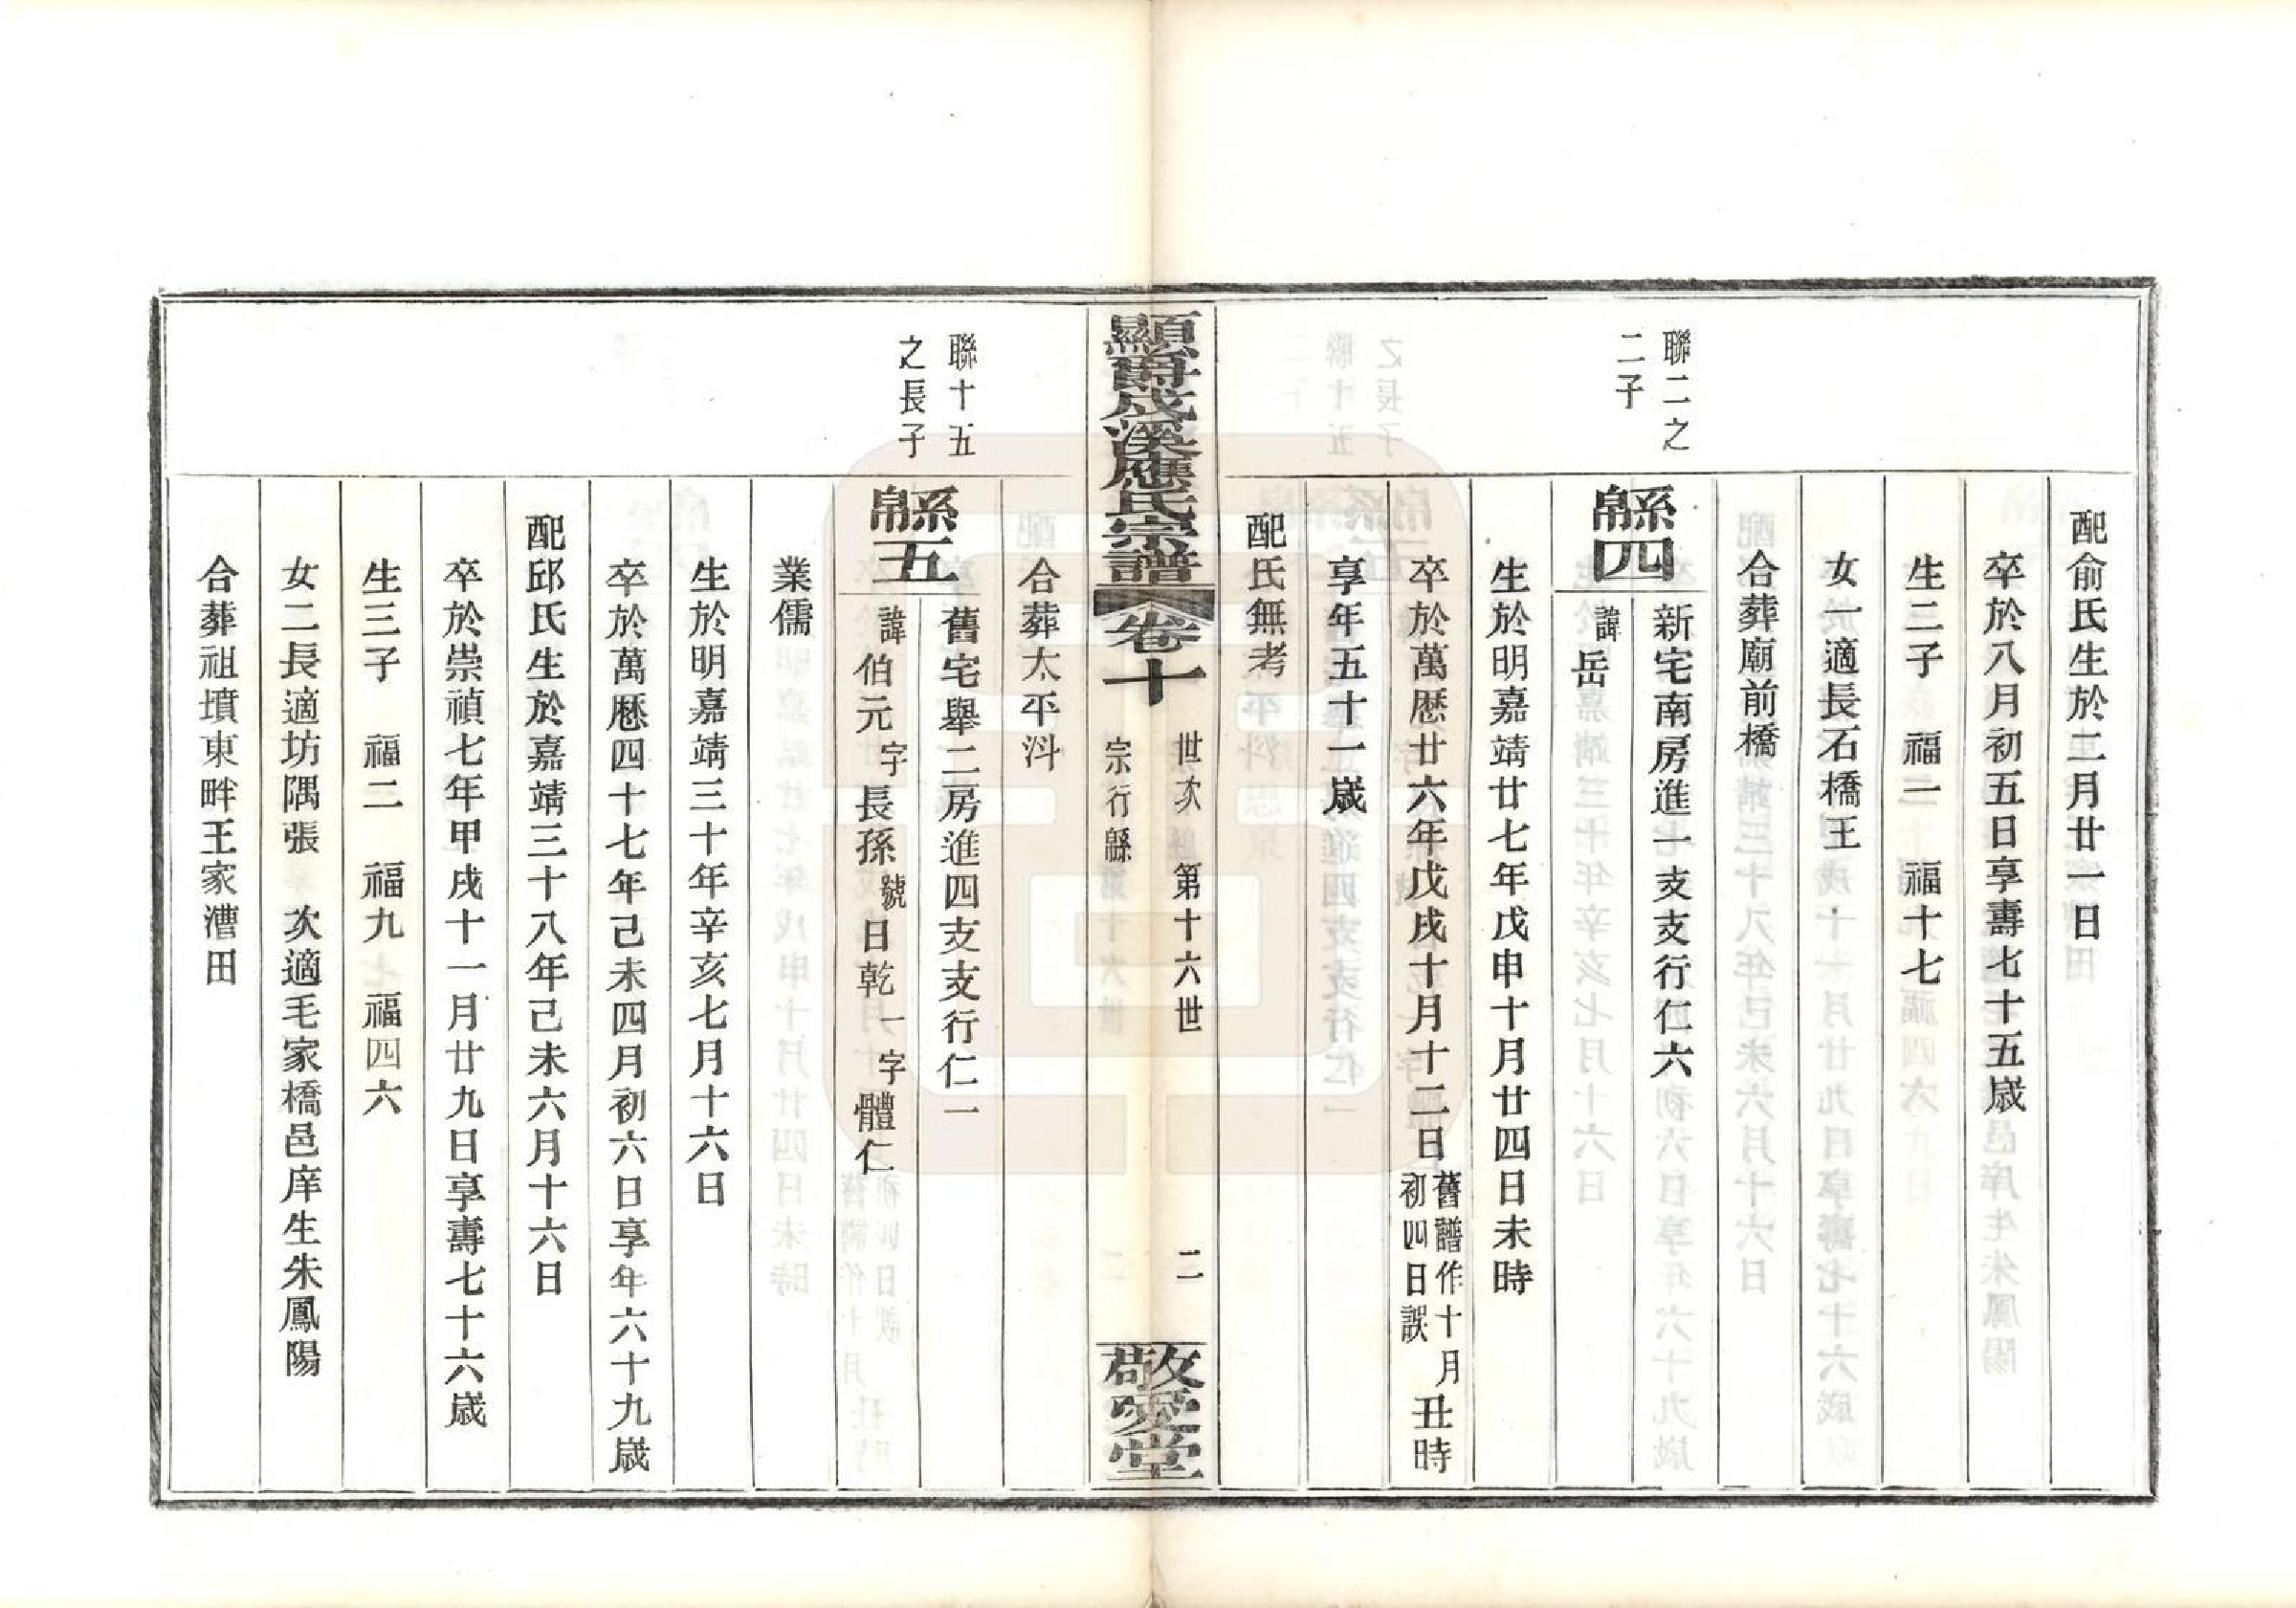 配俞氏生於二月廿一日
卒於八月初五日享壽七十五歲
生二子　福一　福十七
女一適長石橋王
合葬廟前橋
聯二之
二子
緜四
新宅南房進一支支行仁六
諱岳
生於明嘉靖廿七年戊申十月廿四日未時
卒於萬歷廿六年戊戌十月十二日
舊譜作十月
初四日誤
丑時
享年五十一歲
配氏無考
顯爵成溪應氏宗譜　卷十
世次　第十六世　二
宗行緜
敬愛堂
合葬太平
聯十五
之長子
緜五
舊宅舉二房進四支支行仁一
諱伯元字長孫號日乾一字體仁
業儒
生於明嘉靖三十年辛亥七月十六日
卒於萬歷四十七年己未四月初六日享年六十九歲
配邱氏生於嘉靖三十八年己未六月十六日
卒於崇禎七年甲戌十一月廿九日享壽七十六歲
生三子　福二　福九　福四六
女二長適坊隅張　次適毛家橋邑庠生朱鳳陽
合葬祖墳東畔王家漕田